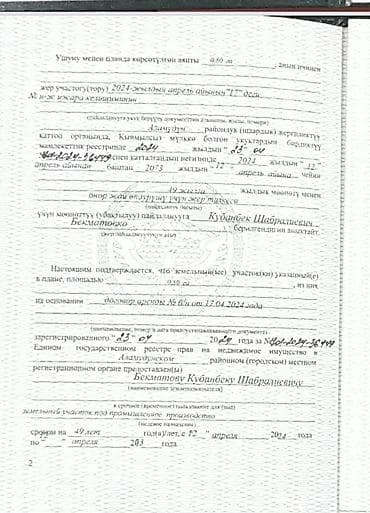 Ушуну менен планда көрсөтүлгөн аянты 0,10 га , анын ичинен
жер участогу(тору) 2024-жылдын апрель айынын "17" деги
№ н-ж ижара келишиминин
Аламүдүн райондук (шаардык) жергиликтүү
каттоо органында, Кыймылсыз мүлккө болгон укуктардын бирдиктүү
мамлекеттик реестринде 2024 жылдын " 23 " 04
катталгандыгынын негизинде 2024 жылдын " 12 "
апрель айынан баштап 2073 жылдын " 12 " апрель айына чейин
49 жылга жылдык мөөнөткө менен
өнөр жай өндүрүшү үчүн жер тилкеси
үчүн мөөнөттүү (убактылуу) пайдаланууга Кубанбек Шабралиевич
Бекматовко берилгендигин аныктайт.
Настоящим подтверждается, что земельный(ые) участок(и) указанный(е)
в плане, площадью 0,10 га , из них
на основании договор аренды № б/н от 17.04.2024 года
(наименование, номер и дата правоустанавливающего документа)
зарегистрированного " 23 " 04 2024 года за №
Едином государственном реестре прав на недвижимое имущество в
Аламудунском районном (городском) местном
регистрационном органе предоставлен(ы)
Бекматову Кубанбеку Шабралиевичу
(наименование землепользователя)
в срочное (временное) пользование для (под)
земельный участок под промышленное производство
(целевое назначение)
сроком на 49 лет год(а)/лет, с " 12 " апреля 2024 года
по " " апреля года
2